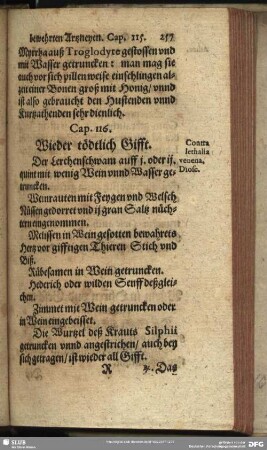 bewehrten Artzneyen. Cap. 115. 257
Myrrha auß Troglodyte gestossen vnnd
mit Wasser getruncken: man mag sie
auch vor sich pillen weise einschlingen als
einer Bonen groß mit Honig/ vnnd
ist also gebraucht den Hustenden vnnd
Kurtzathenden sehr dienlich.
Cap. 116.
Wieder tödtlich Gifft.
Contra
lethalia
venena,
Diosc.
Der Lerchenschwam auff j. oder ij.
quint mit wenig Wein vnnd Wasser ge-
truncken.
Weinrauten mit Feygen vnd Welsch
Nüssen gedorret vnd ij gran Saltz nüch-
tern eingenommen.
in Wein gesotten bewahret
Hertz vor gifftigen Thieren Stich vnd
Biß.
Rübesamen in Wein getruncken.
Hederich oder wilden Senff deßglei-
chen.
Zimmet mit Wein getruncken oder
in Wein eingebeisset.
Die Wurtzel deß Krauts Silphii
getruncken vnnd angestrichen/ auch bey
sich getragen/ ist wieder all Gifft.
R Das
SLUB